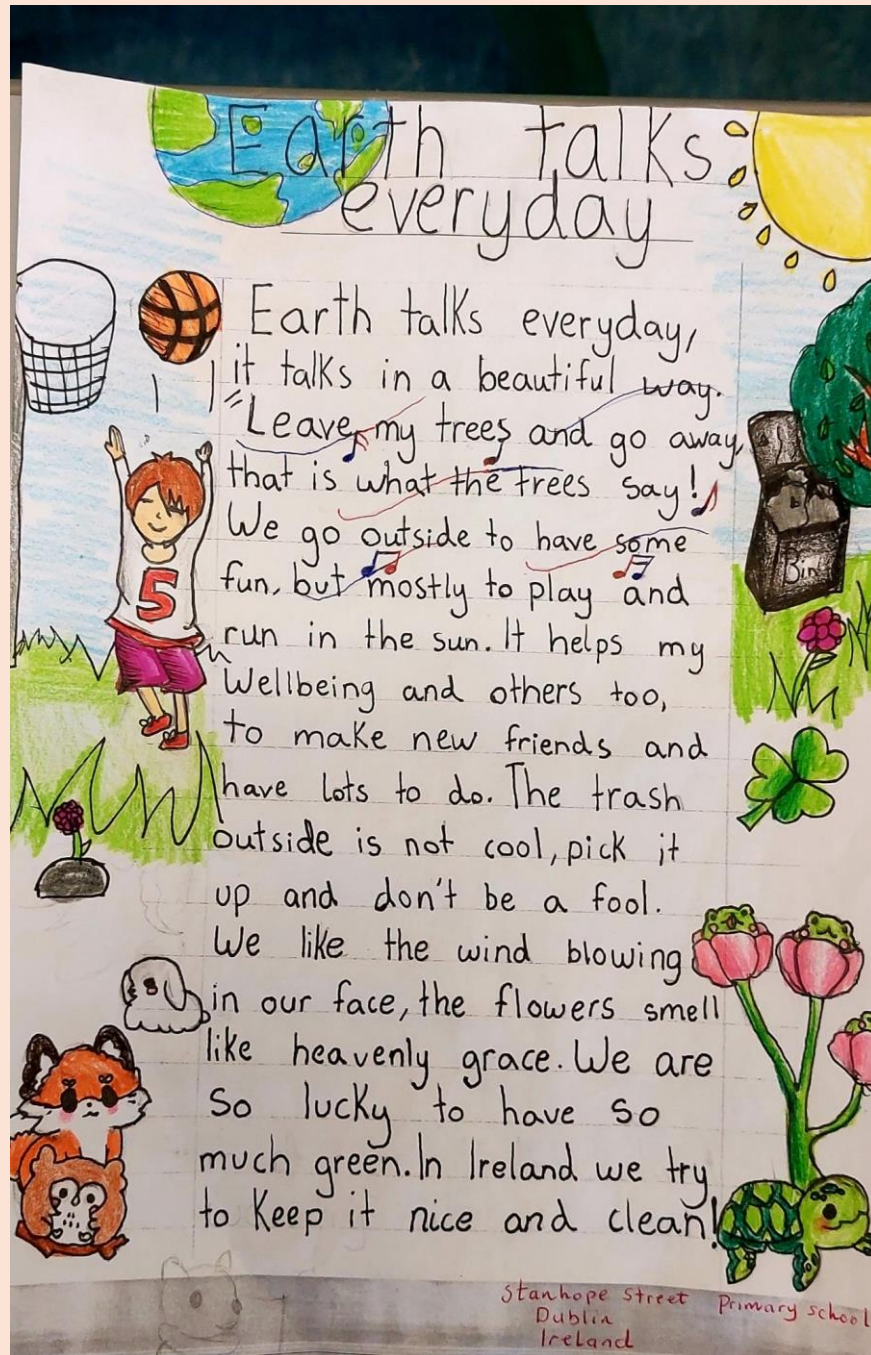 Earth talks
everyday
Earth talks everyday,
it talks in a beautiful way.
"Leave my trees and go away,
that is what the trees say!
We go outside to have some
fun, but mostly to play and
run in the sun. It helps my
Wellbeing and others too,
to make new friends and
have lots to do. The trash
outside is not cool, pick it
up and don't be a fool.
We like the wind blowing
in our face, the flowers smell
like heavenly grace. We are
so lucky to have so
much green. In Ireland we try
to keep it nice and clean!
5
Bin
Stanhope Street Primary school
Dublin
Ireland